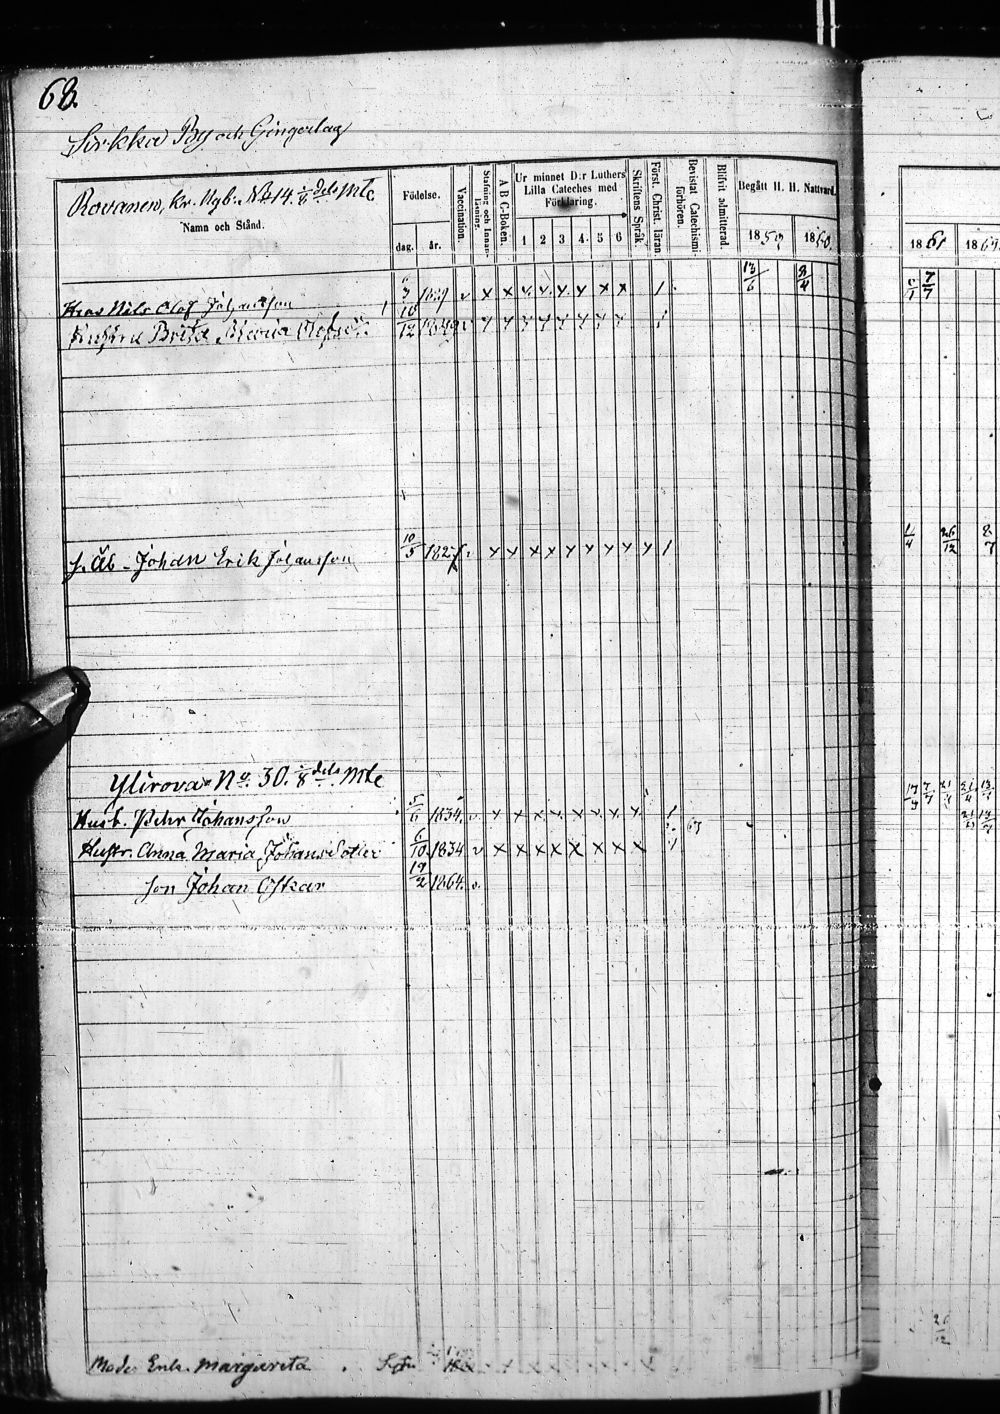 68.
Sirkka By och Gingerlag
Rovanen, kr. Nyb. No 14. 1/8 dels Mtl
Namn och Stånd.
Födelse.
dag. år.
Vaccination.
Stafning och Innan-Läsning.
A B C-Boken.
Ur minnet D:r Luthers Lilla Cateches med Förklaring.
1 2 3 4. 5 6
Skriftens Språk.
Först. Christ. läran.
Bevistat Catechismi-förhören.
Blifvit admitterad
Begått H. H. Nattvard.
1859 1860.
1861 186
Nils Olof Johansson 1829 v x x v. v. v. x x x 1 13/6 8/4 7/7
Hustru Brita Maria 12
s. Åb - Johan Erik Johansson 10/5 1827 x x x x x x x x x 1 1/4 26/12 8/7
Ylirova No 30. 1/8 dels Mtl
Husb. Pehr Johansson 5/6 1834. v. x x x x x x x x 1
67
Hustr. Anna Maria Johansdotter 6/10 1834 v x x x x x x x x 1
son Johan Oskar 19/2 1864. v.
Enk. Margareta
26/12